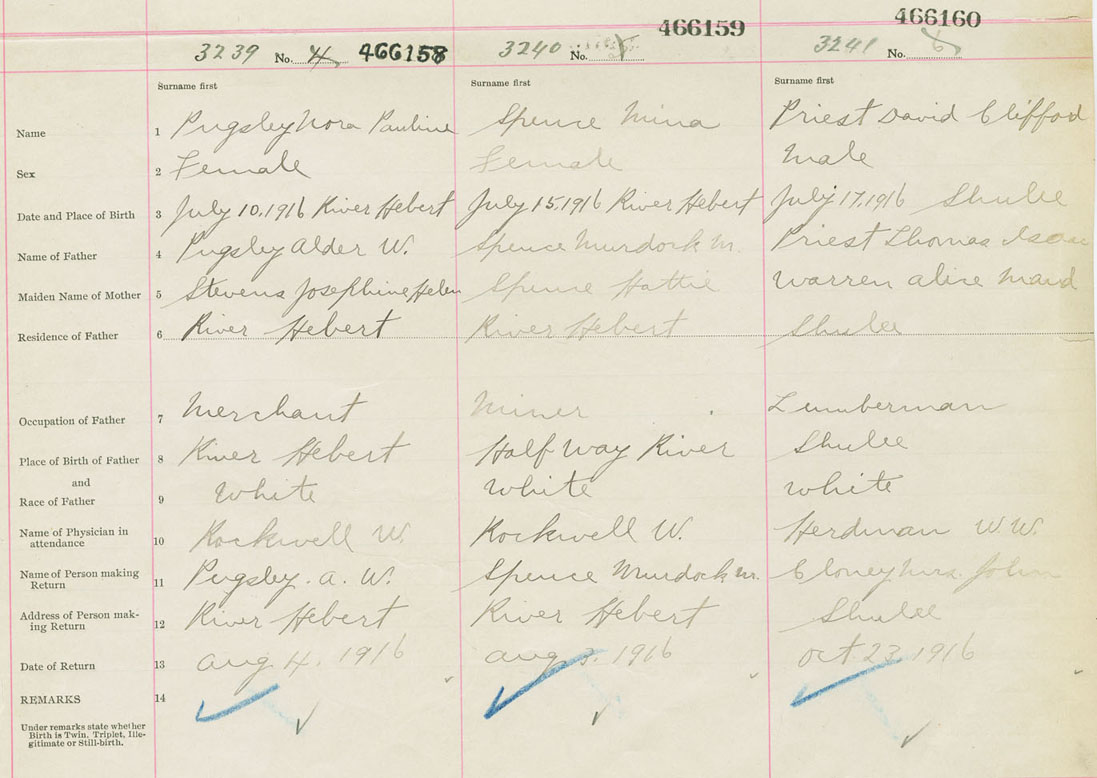 466159 466160
3239 No. 4 466158 3240 No. 3241 No.
Surname first Surname first Surname first
Name 1 Pugsley Nora Pauline Spence Mina Priest David Clifford
Sex 2 Female Female Male
Date and Place of Birth 3 July 10, 1916 River Hebert July 15, 1916 River Hebert July 17, 1916 Shulee
Name of Father 4 Pugsley Alder W. Spence Murdock M. Priest Thomas Isaac
Maiden Name of Mother 5 Stevens Josephine Helen Spence Hattie Warren Alice Maud
Residence of Father 6 River Hebert River Hebert Shulee
Occupation of Father 7 Merchant Miner Lumberman
Place of Birth of Father 8 River Hebert Half Way River Shulee
and
Race of Father 9 White White White
Name of Physician in
attendance 10 Rockwell W. Rockwell W. Herdman W. W.
Name of Person making
Return 11 Pugsley. A. W. Spence Murdock M. Cloney Mrs. John
Address of Person mak-
ing Return 12 River Hebert River Hebert Shulee
Date of Return 13 Aug 4. 1916 Aug 3. 1916 Oct 23 1916
REMARKS 14
Under remarks state whether
Birth is Twin, Triplet, Ille-
gitimate or Still-birth.